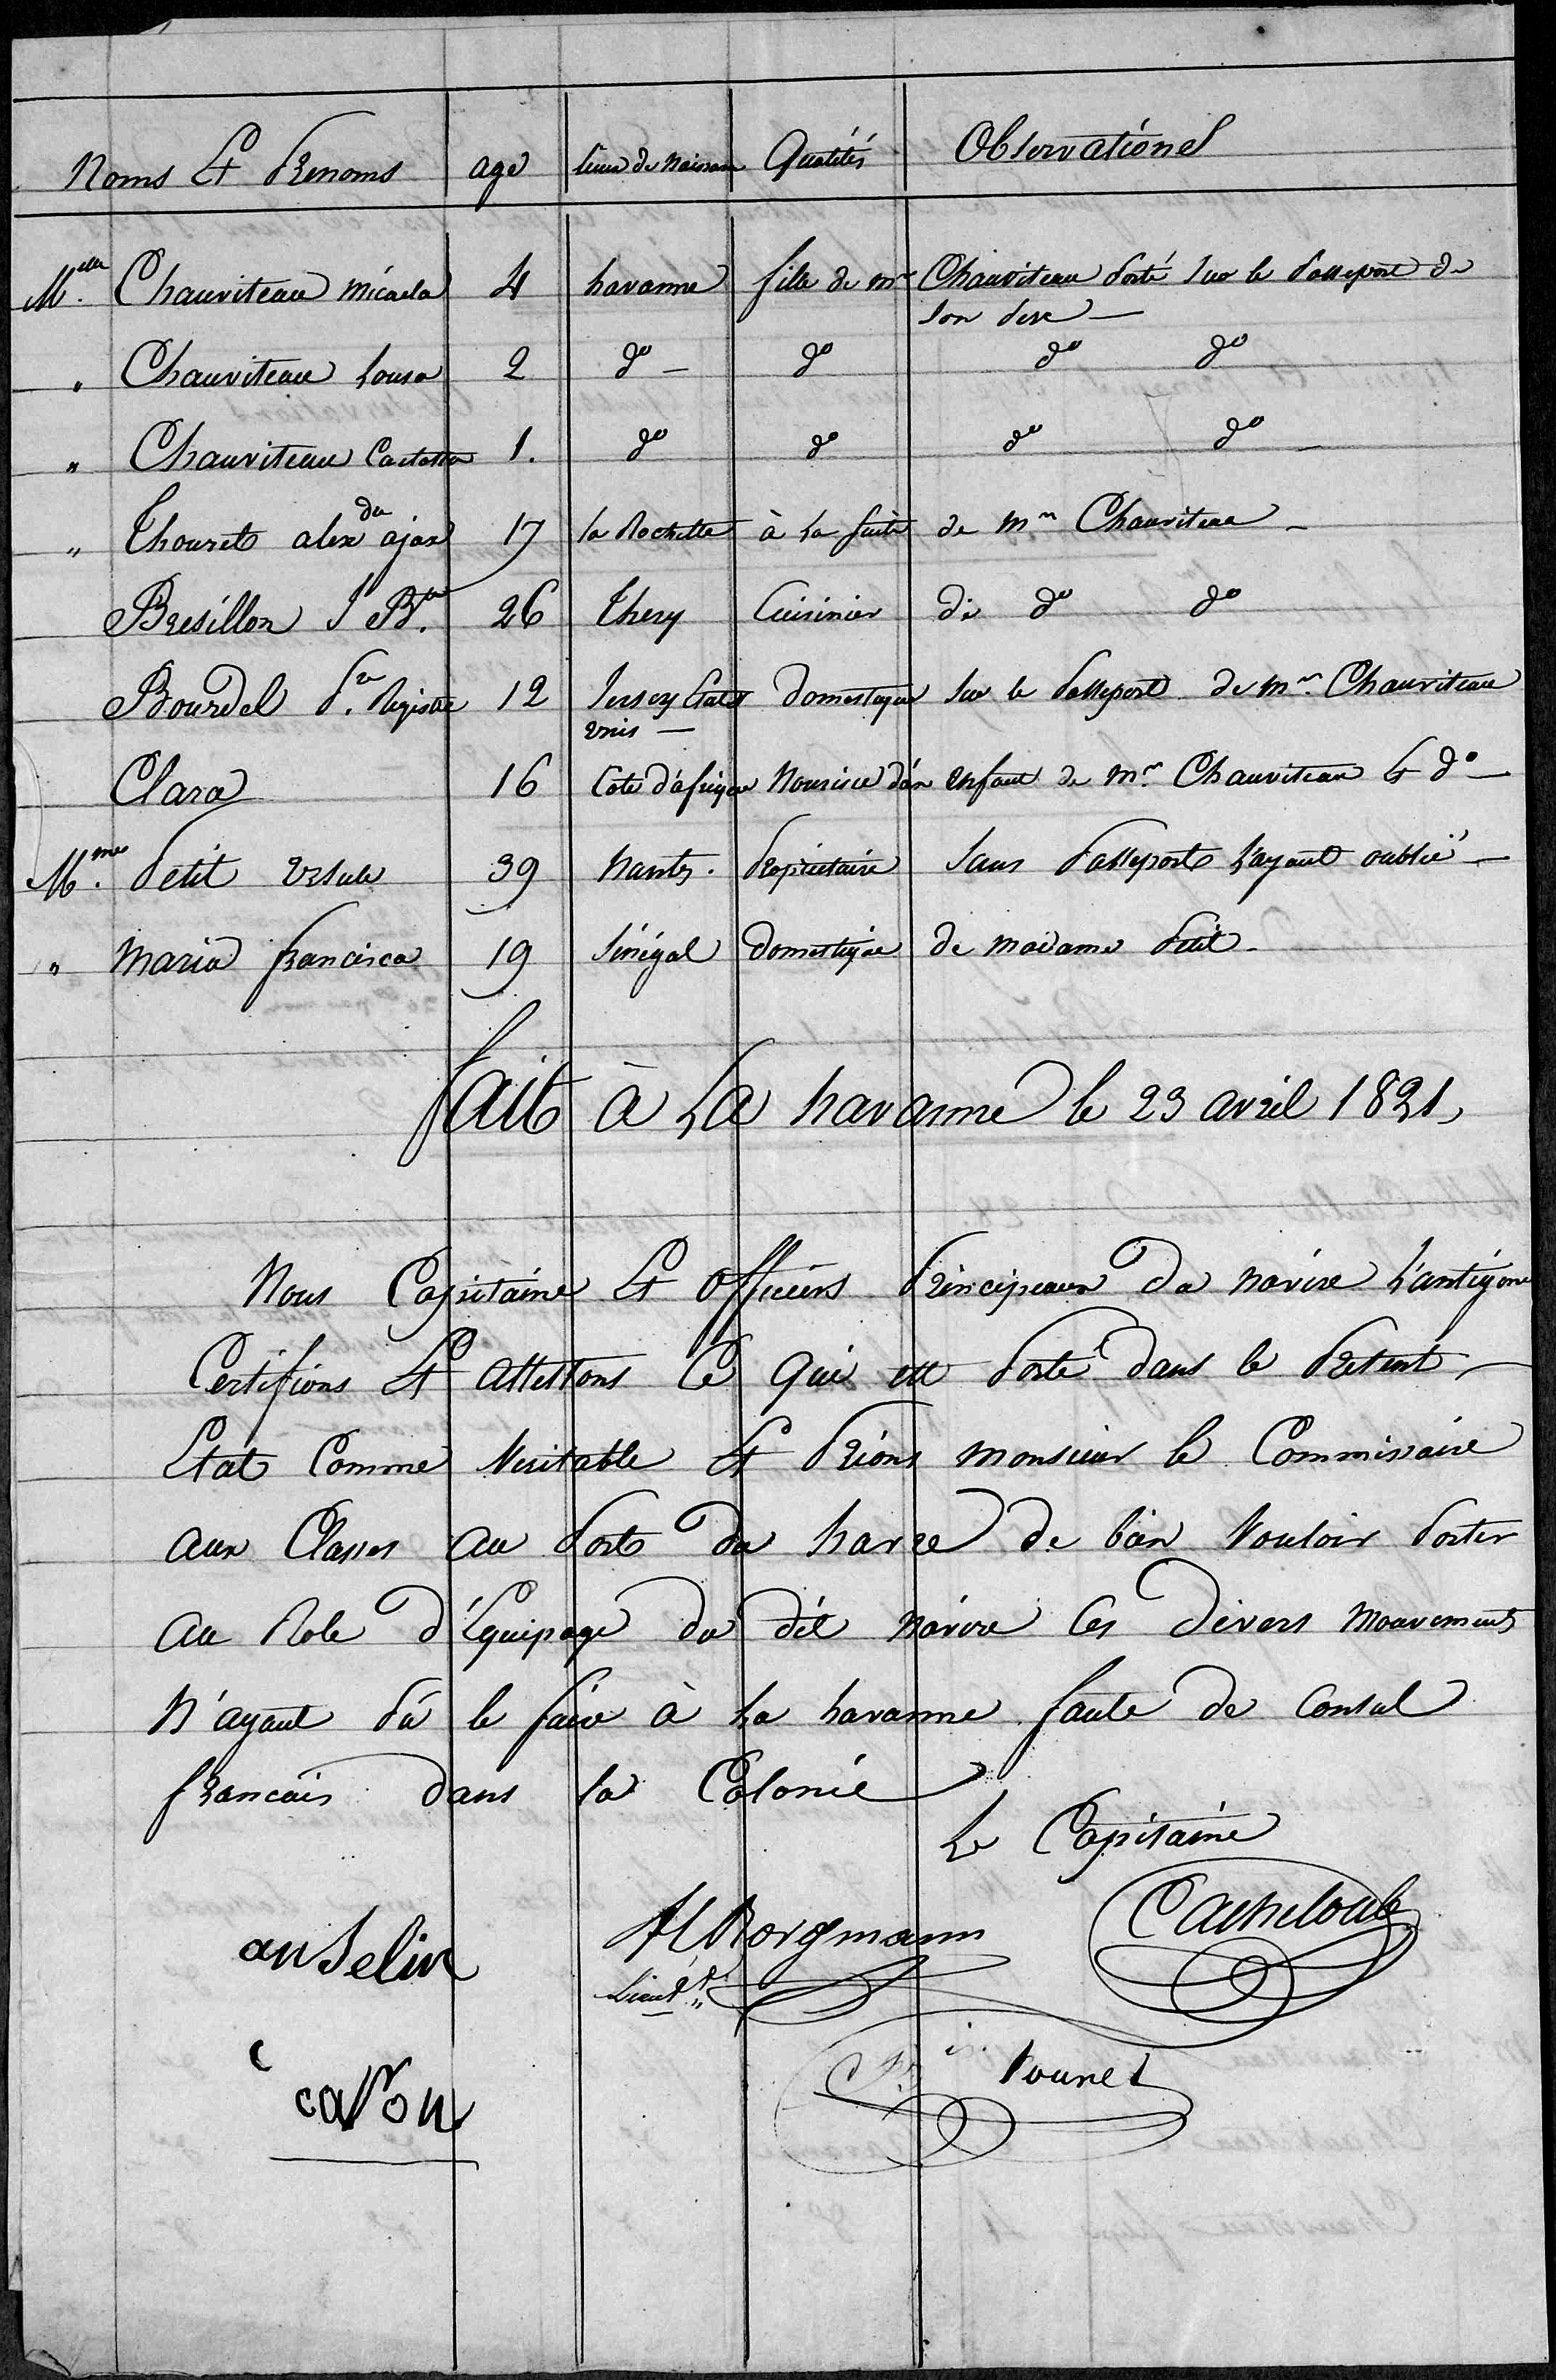 Noms Et Prenoms age lieux de Naissance Qualités Observations
Melle Chauviteau Micaela 4 havanne fille de Mr Chauviteau Porté sur le Passeport de
son Pere —
" Chauviteau Louisa 2 do — do do do
" Chauviteau 1. do do do do —
" Thouret alexdre ajax 17 la Rochelle à la suite de Mr Chauviteau —
" Bresillon J Bte 26 Thery Cuisinier de do do
Bourdel Registe 12 Jersey Etats Domestique sur le Passeport de Mr. Chauviteau
unis —
Clara 16 Cote d'afrique Nourice d'un enfant de Mr. Chauviteau & do —
Mme. Petit Ursule 39 Nantes. Propriétaire sans Passeport L'ayant oublié —
" Maria francisca 19 Sénégal Domestique de madame Petit —
fait à La havanne le 23 avril 1821,
Nous Capitaine Et Officiers Principeaux du navire L'antigone
Certifions Et attestons Ce qui est Porté dans le Present
Etat Comme Veritable Et Prions monsieur le Commissaire
aux Classes au Port du havre de bien Vouloir Porter
au Role d'Equipage du dit Navire Ces divers Mouvements
N'ayant Pû le faire à La havanne faute de Consul
francais dans la Colonie
Le Capitaine
anselin Borgmann Cacheloub
Lieut.
caron Vounet